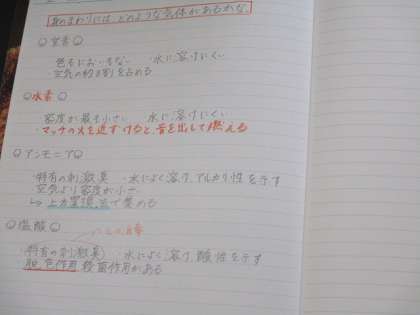 身のまわりには、どのような気体があるかな。
☺窒素☺
・色もにおいもない ・水に溶けにくい
・空気の約8割を占める
☺水素☺
・密度が最も小さい ・水に溶けにくい
・マッチの火を近づけると、音を出して燃える
☺アンモニア☺
・特有の刺激臭 ・水によく溶け、アルカリ性を示す
・空気より密度が小
↳上方置換法で集める
☺塩酸☺
・特有の刺激臭 ・水によく溶け、酸性を示す
・脱色作用、殺菌作用がある